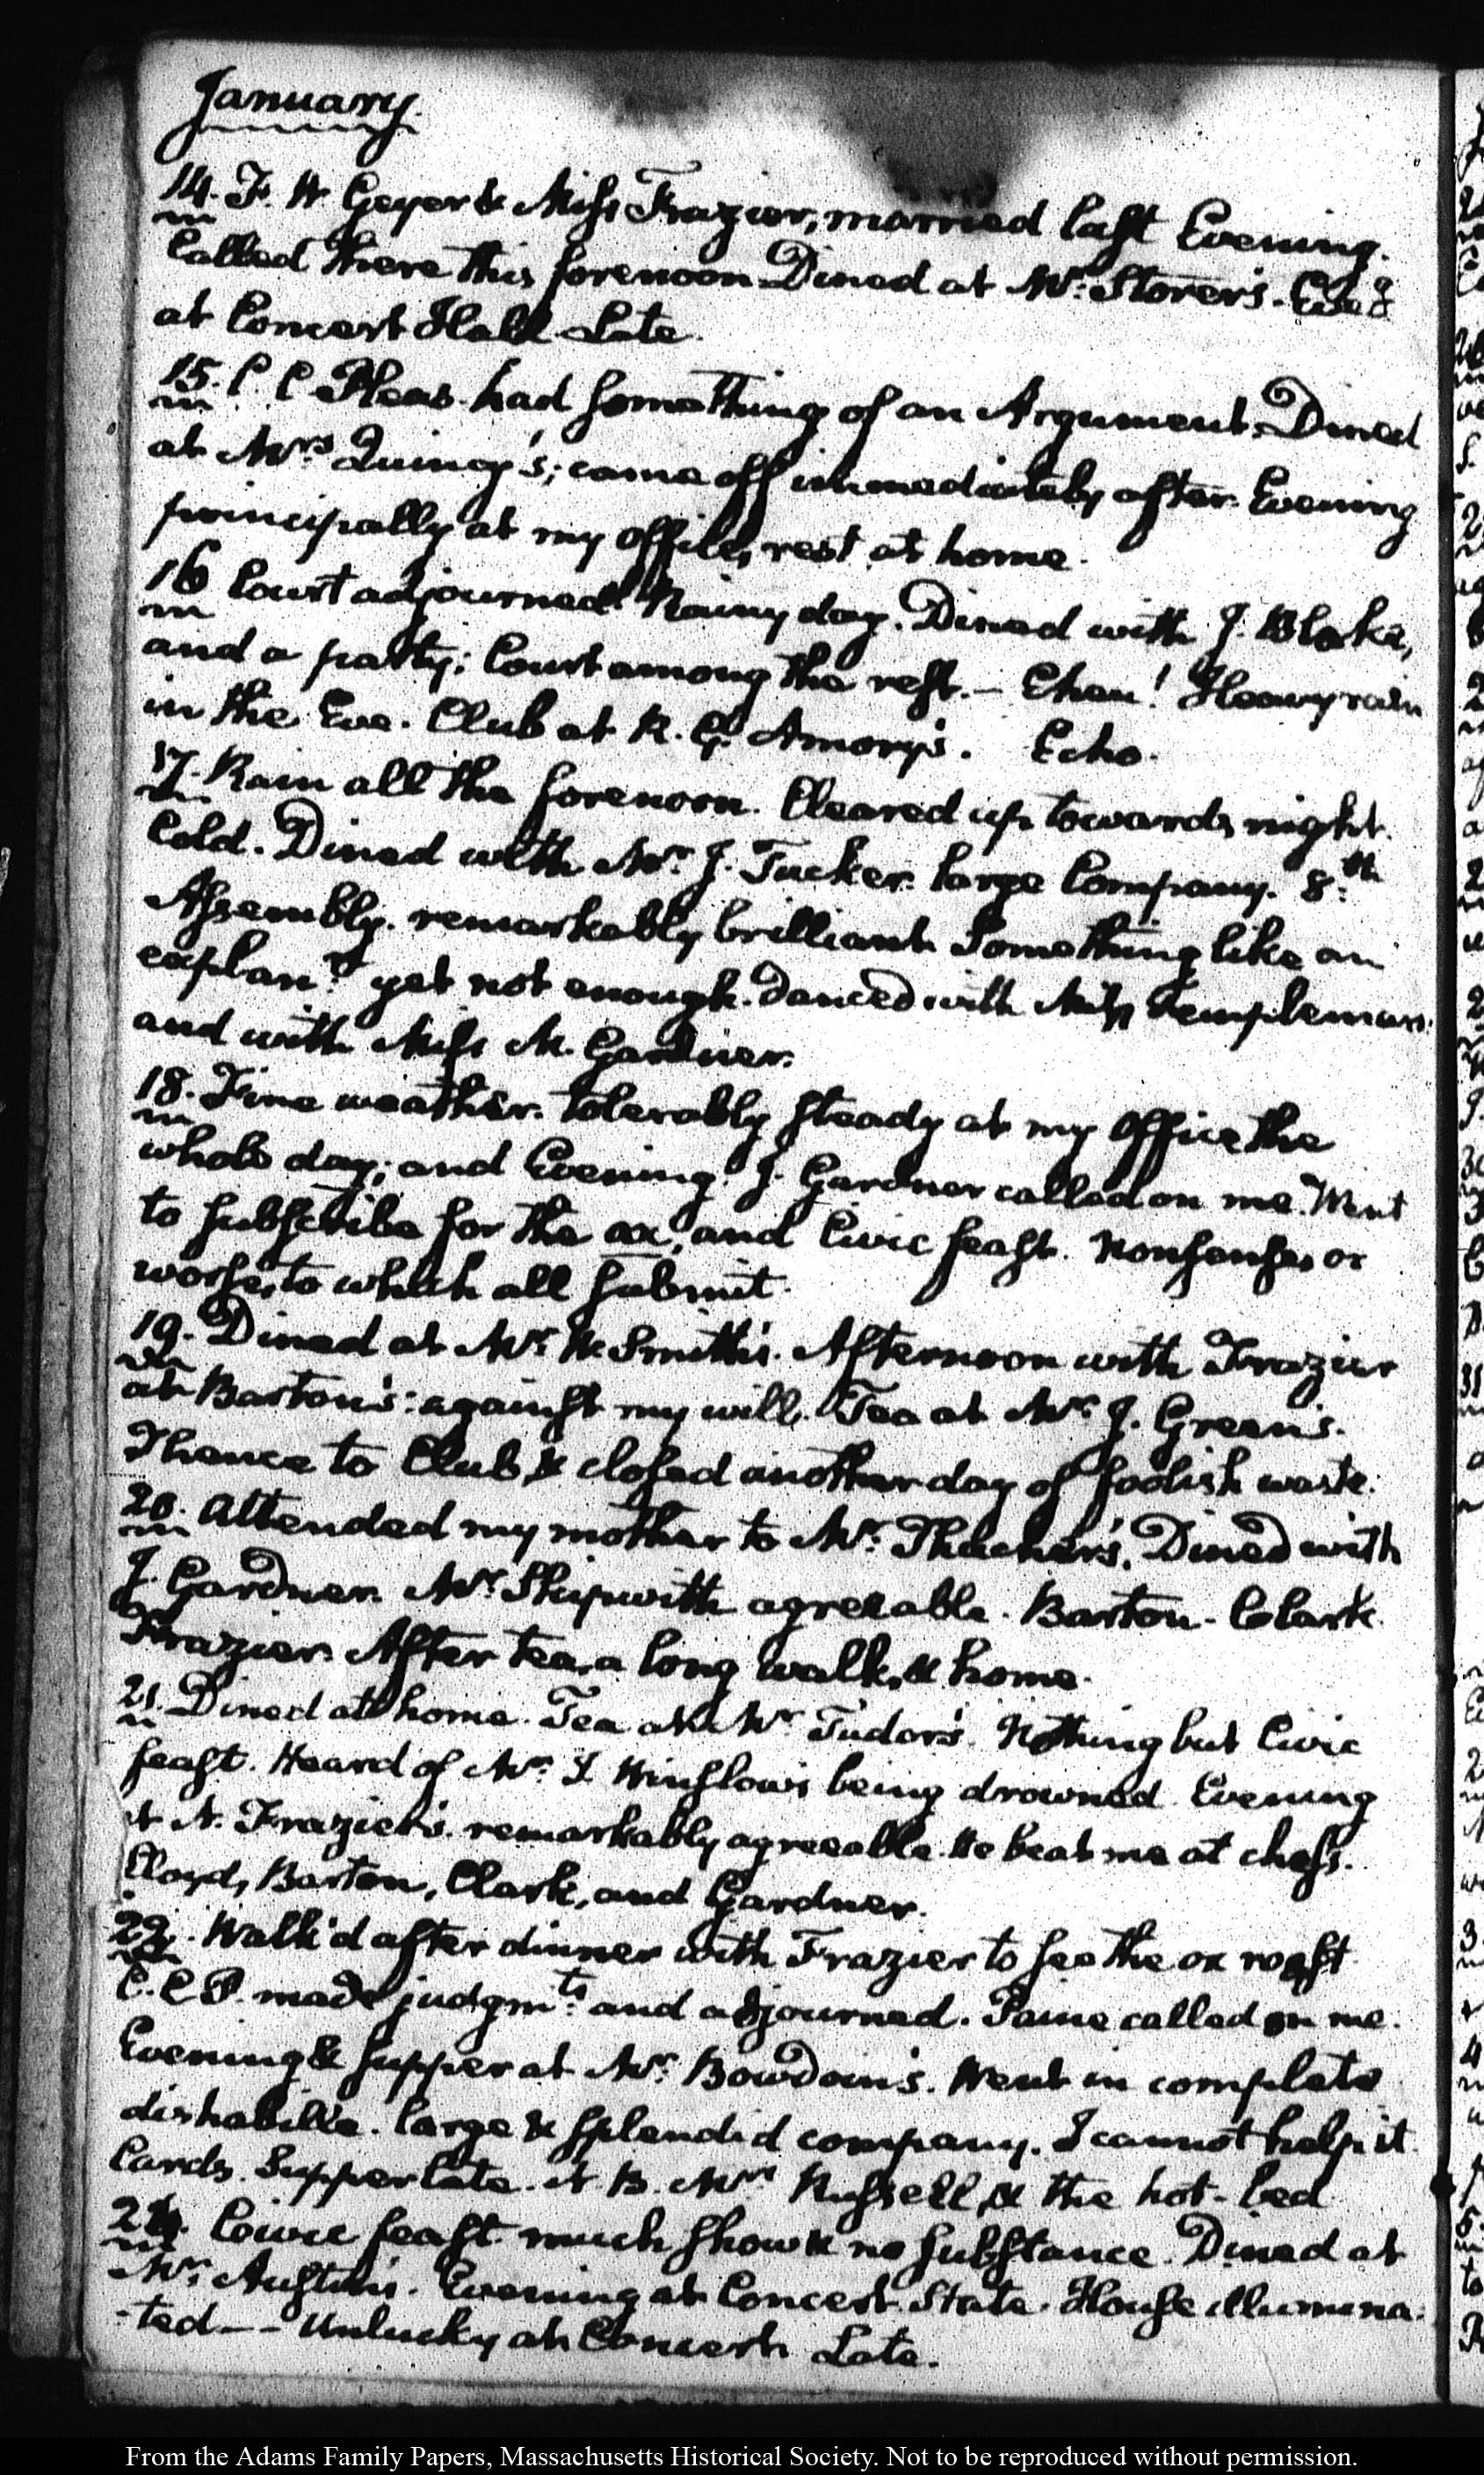 January.
14. F. W Geyer & Miss Frazier, married last Evening.
Called there this forenoon Dined at Mr. Storer's. Eveg
at Concert Hall Late.
15. C. C Pleas. had something of an Argument. Dined
at Mrs Quincy's; came off immediately after. Evening
principally at my office, rest at home.
16 Court adjourned. Rainy day. Dined with J. Blake,
and a party; Court among the rest. — Eheu! Heavy rain
in the Eve. Club at R. G. Amory's. Echo.
17. Rain all the forenoon. Cleared up towards night.
Cold. Dined with Mr. J. Tucker. large Company. 8th
Assembly. remarkably brilliant. Something like an
explann. yet not enough. Danced with Miss Templeman.
and with Miss M. Gardner.
18. Fine weather. tolerably steady at my Office the
whole day; and Evening. J. Gardner called on me. Went
to subscribe for the ox, and Civic feast. Nonsense, or
worse, to which all submit.
19. Dined at Mr. W Smith's. Afternoon with Frazier
at Barton's: against my will. Tea at Mr. J. Green's.
Thence to Club & closed another day of foolish waste.
20. Attended my mother to Mr. Thacher's. Dined with
J. Gardner. Mr. Skipwith agreeable. Barton. Clark.
Frazier. After tea, a long walk, & home.
21. Dined at home. Tea at Mr. Tudor's. Nothing but Civic
feast. Heard of Mr. I Winslow's being drowned. Evening
at N. Frazier's. remarkably agreeable. He beat me at chess.
Lloyd, Barton, Clark, and Gardner.
22. Walk'd after dinner with Frazier to see the ox roast
C. C P. made judgmts. and adjourned. Paine called on me.
Evening & supper at Mr. Bowdoin's. Went in complete
dishabille. large & splendid company. I cannot help it.
Cards. Supper late. N. B. Mrs Russell, & the hot-bed
24. Civic feast. much show & no substance. Dined at
Mr. Austin's. Evening at Concert. State-House illumina-
-ted — - Unlucky at Concert. Late.
From the Adams Family Papers, Massachusetts Historical Society. Not to be reproduced without permission.